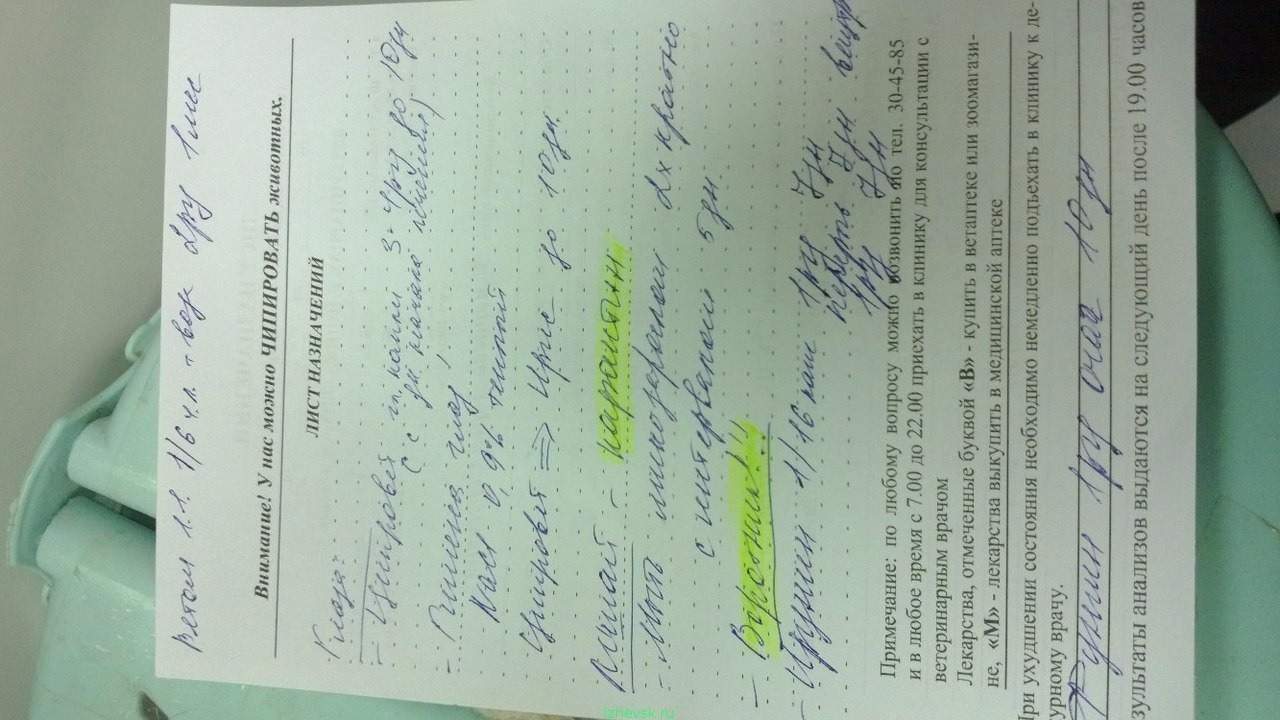 1/6 ч.л. + вода 2р/д 1 мес
Внимание! У нас можно ЧИПИРОВАТЬ животных.
ЛИСТ НАЗНАЧЕНИЙ
Глаза:
= Ципровет гл. капли 3- 4р/д до 10дн
(с дн начала лечения)
- Гигиена глаз,
NaCl 0,9% теплый
Ципровет ⇒ Ирис до 10 дн.
Лишай - карантин
- Мыть 2х кратно
с интервалом 5 дн
- Воротник!!!
- 1/16 1р/д 7дн
перерыв 7дн
1р/д 7дн
Примечание: по любому вопросу можно позвонить по тел. 30-45-85
и в любое время с 7.00 до 22.00 приехать в клинику для консультации с
ветеринарным врачом
Лекарства, отмеченные буквой «В» - купить в ветаптеке или зоомагази-
не, «М» - лекарства выкупить в медицинской аптеке
При ухудшении состояния необходимо немедленно подъехать в клинику к де-
журному врачу.
1р/д 10 дн
зультаты анализов выдаются на следующий день после 19.00 часов
izhevsk.ru